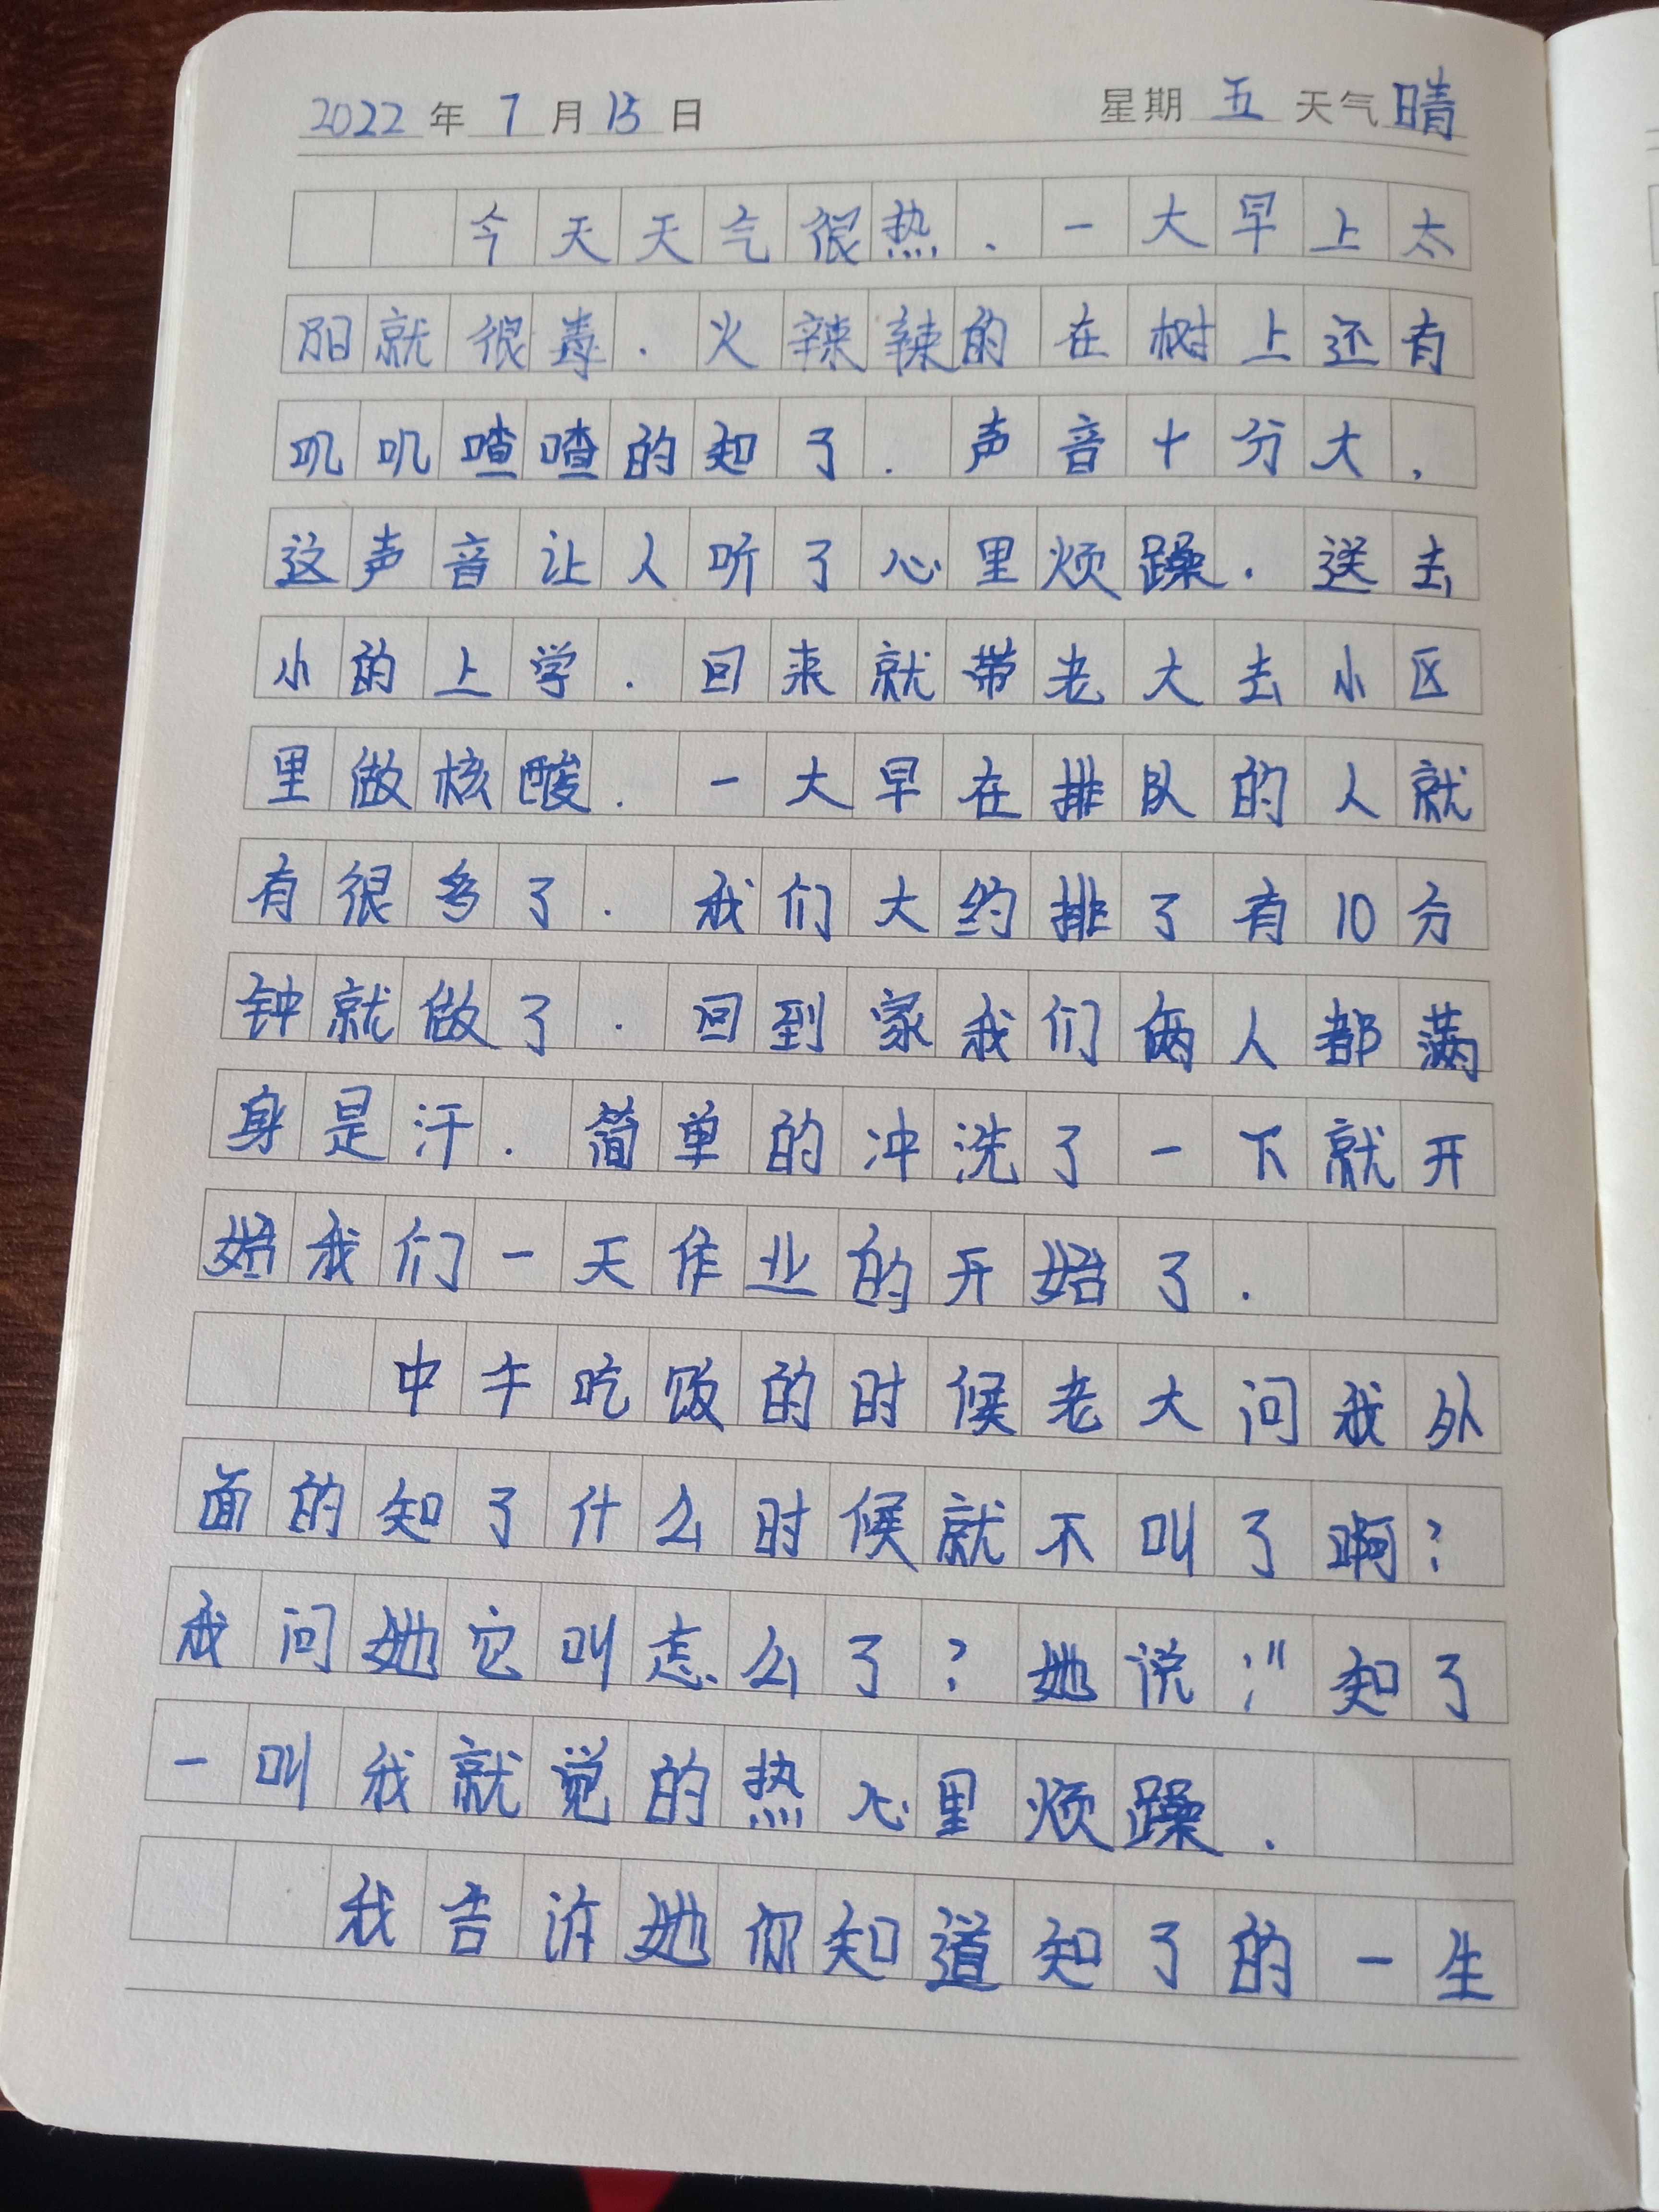 2022年7月15日 星期五天气晴
今天天气很热.一大早上太
阳就很毒.火辣辣的在树上还有
叽叽喳喳的知了.声音十分大,
这声音让人听了心里烦躁.送去
小的上学.回来就带老大去小区
里做核酸.一大早在排队的人就
有很多了.我们大约排了有10分
钟就做了.回到家我们俩人都满
身是汗.简单的冲洗了一下就开
始我们一天作业的开始了.
中午吃饭的时候老大问我外
面的知了什么时候就不叫了啊?
我问她它叫怎么了?她说:"知了
一叫我就觉的热心里烦躁.
我告诉她你知道知了的一生